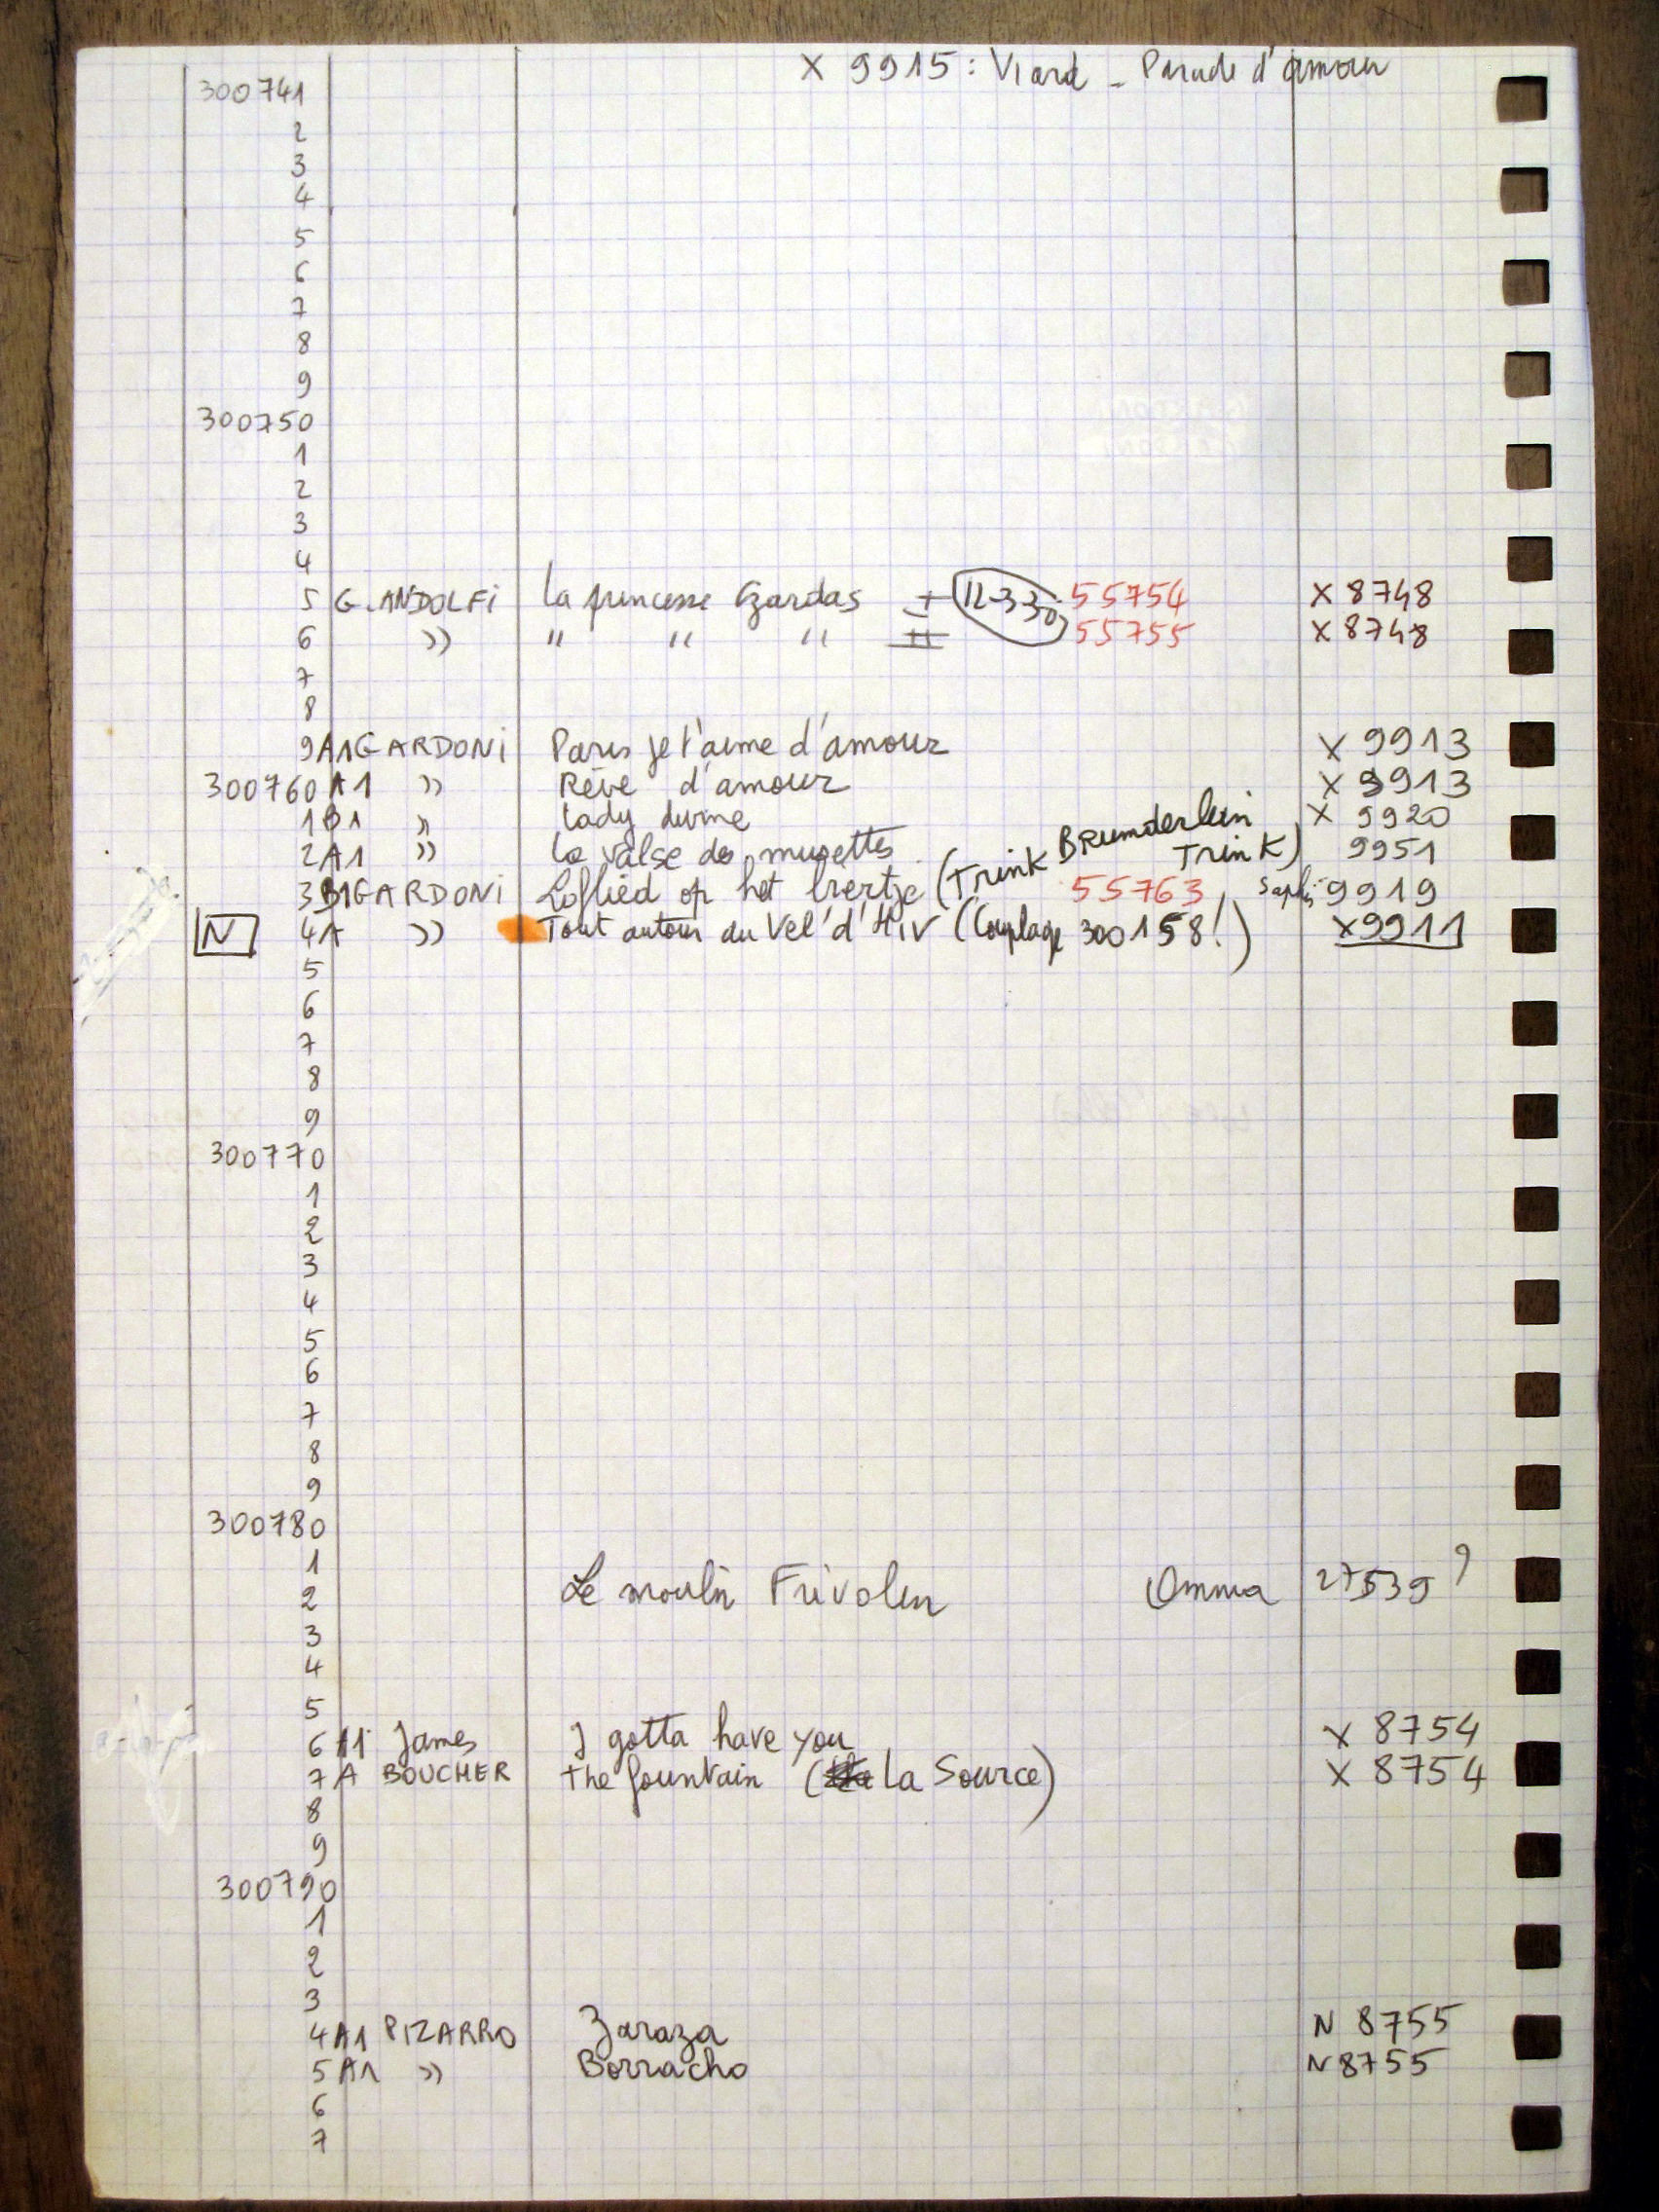 X 9915 : Viard - Parade d'amour
300741
2
3
4
5
6
7
8
9
300750
1
2
3
4
5 GANDOLFI La princesse Czardas I 12-330 55754 X 8748
6 " " " " II 55755 X 8748
7
8
9 A1 GARDONI Paris je t'aime d'amour X 9913
300760 A1 " Rêve d'amour X 9913
1 B1 " Lady divine X 9920
2 A1 " La valse des musettes 9951
3 B1 GARDONI Loflied op het biertje (Trink Brümderlein Trink) 55763 Saphir 9919
N 4 A " Tout autour du Vel'd'Hiv (Couplage 300158!) X9911
5
6
7
8
9
300770
1
2
3
4
5
6
7
8
9
300780
1
2 Le moulin Frivolin Omnia 27539 ?
3
4
5
6 A1 James I gotta have you X 8754
7 A BOUCHER The fountain (La Source) X 8754
8
9
300790
1
2
3
4 A1 PIZARRO Zaraza N 8755
5 A1 " Borracho N 8755
6
7